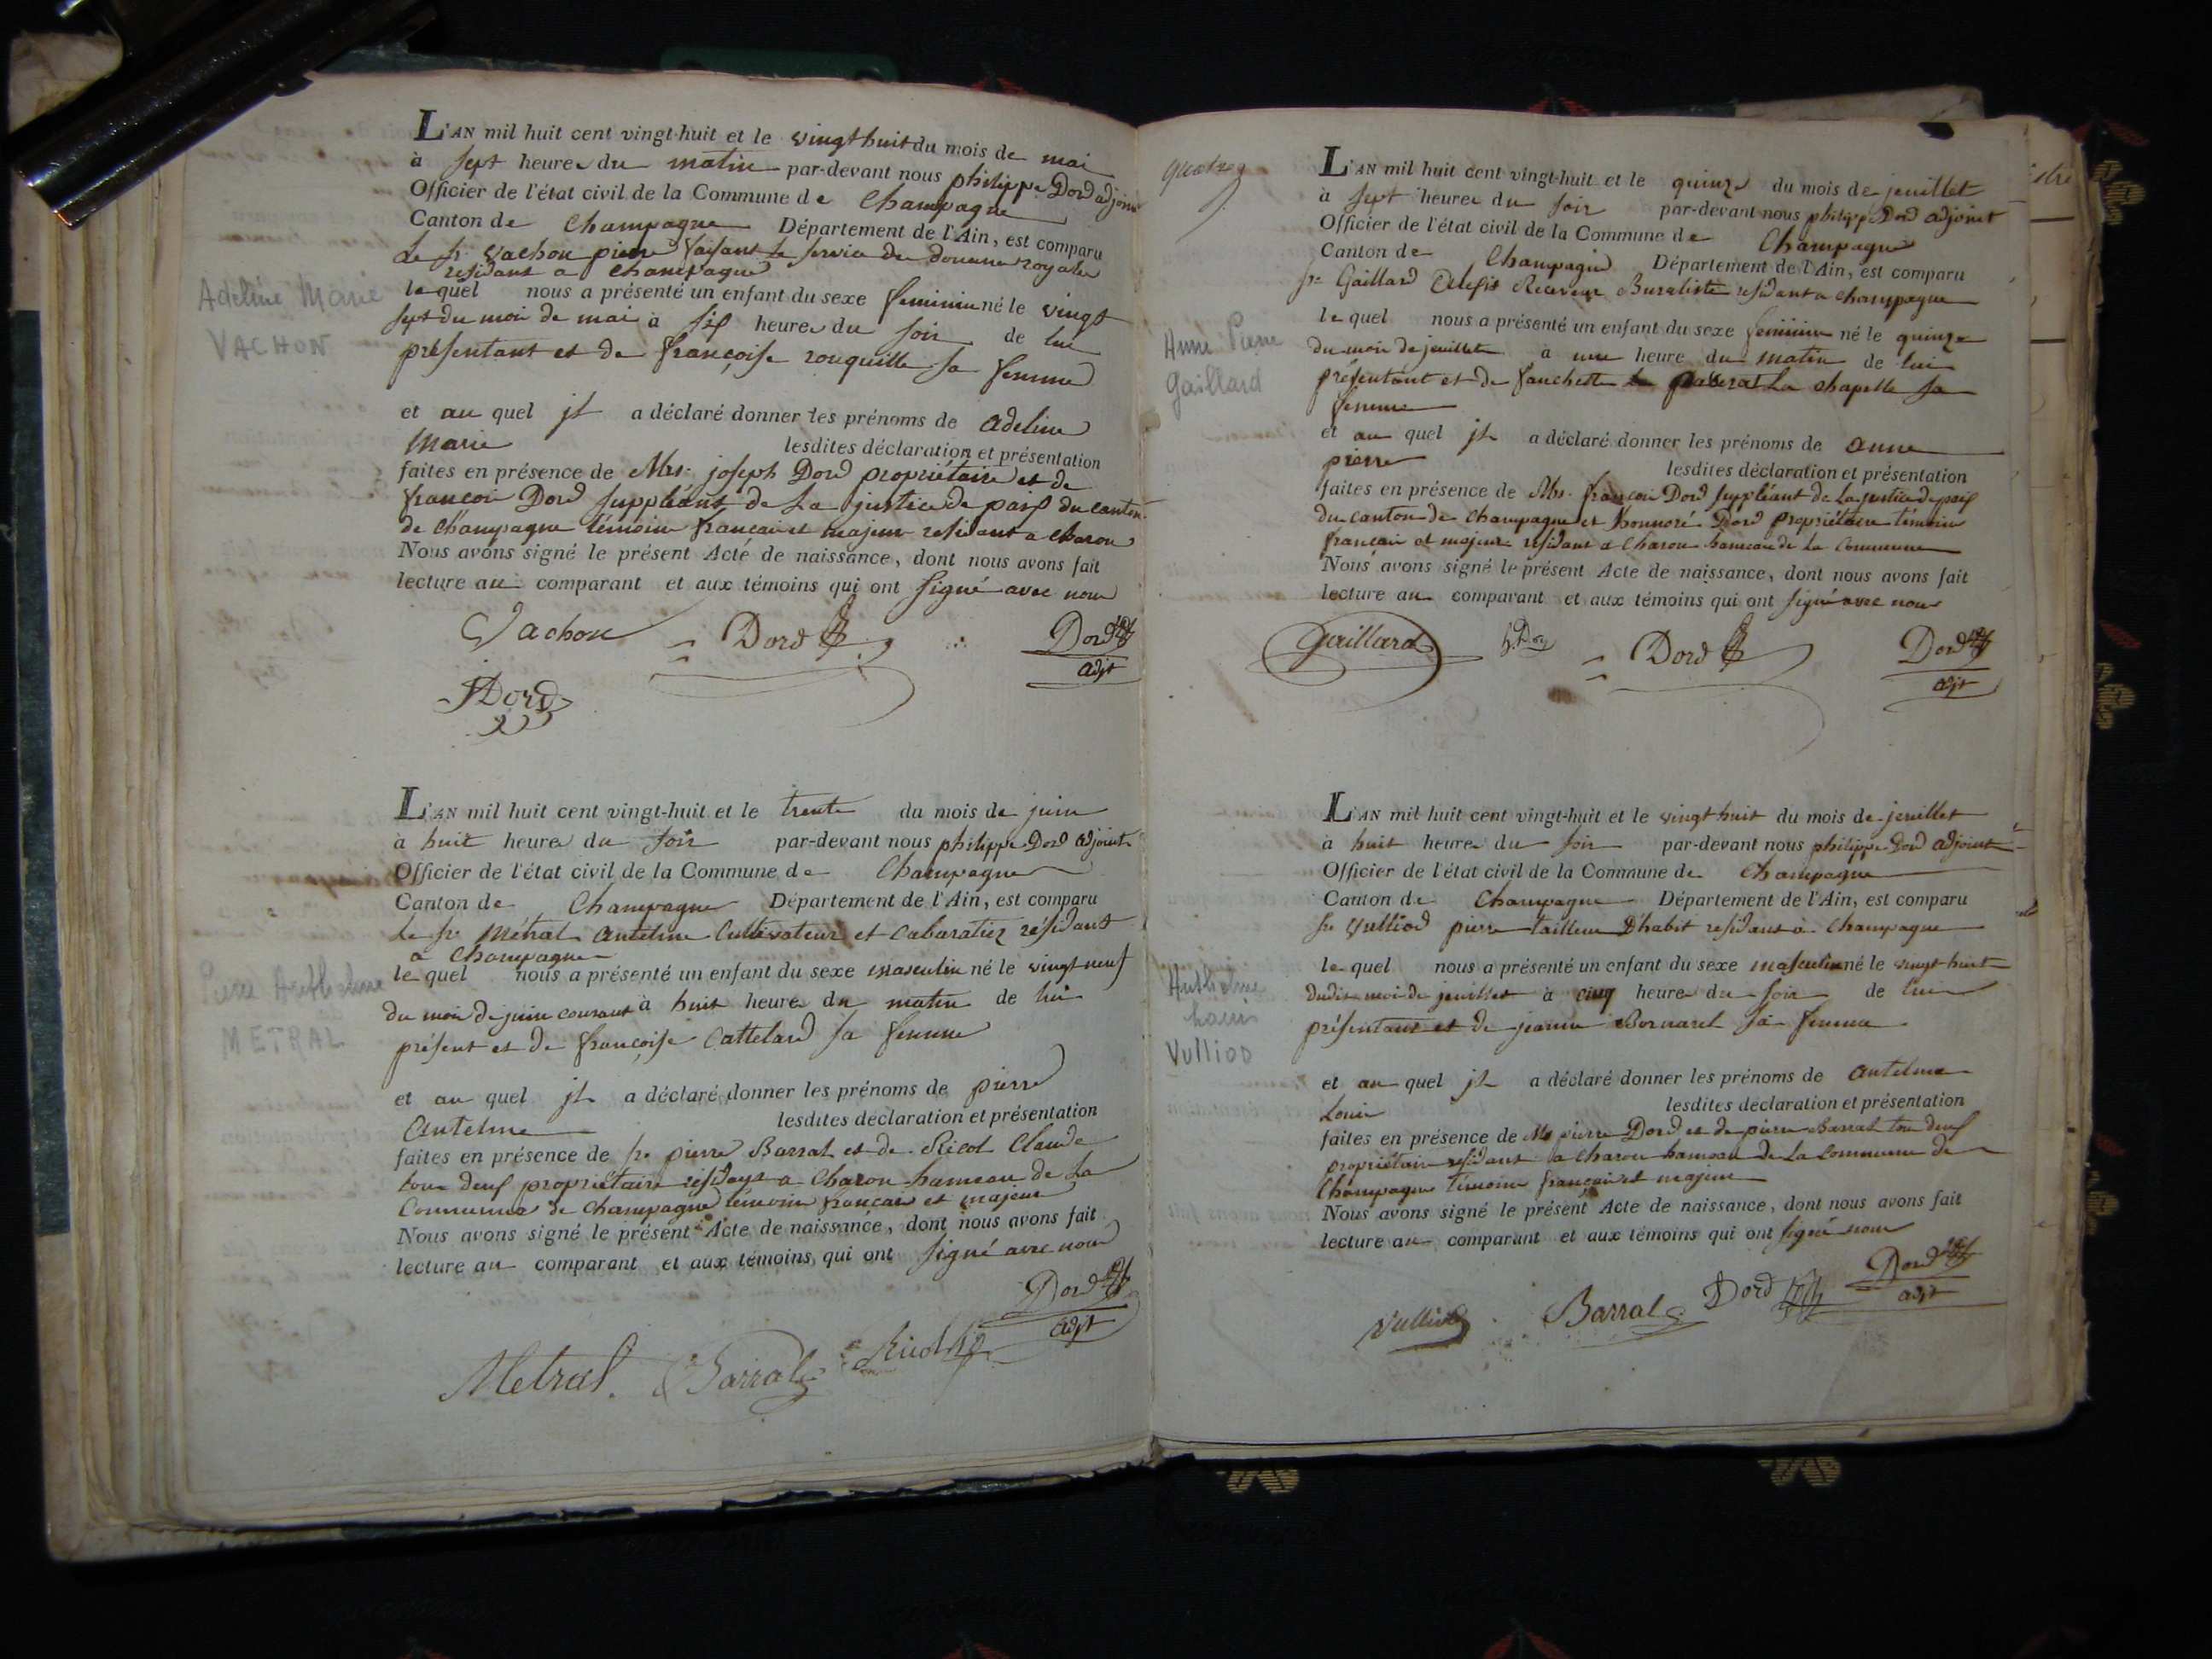 L'AN mil huit cent vingt-huit et le vingt huit du mois de mai
à sept heures du matin par-devant nous philippe Dord adjoint
Officier de l'état civil de la Commune de Champagne
Canton de Champagne Département de l'Ain, est comparu
Le sr. vachon pierre faisant le service des douanes royales
résidant a Champagne
lequel nous a présenté un enfant du sexe feminin né le vingt
Adeline Marie
VACHON
sept du moi de mai à six heures du soir de lui
présentant et de françoise rouquille sa femme
et au quel jl a déclaré donner les prénoms de adeline
Marie lesdites déclaration et présentation
faites en présence de Mrs. joseph Dord propriétaire et de
françoi Dord suppléant de La justice de paix du canton
de Champagne témoins françai et majeur residant a charon
Nous avons signé le présent Acte de naissance, dont nous avons fait
lecture au comparant et aux témoins qui ont signé avec nous
Vachon Dord Dord
adjt
JDord
L'AN mil huit cent vingt-huit et le trente du mois de juin
à huit heures du soir par-devant nous philippe Dord adjoint
Officier de l'état civil de la Commune de Champagne
Canton de Champagne Département de l'Ain, est comparu
Le sr. Métral antelme Cultivateur et Cabaratier résidant
a Champagne
le quel nous a présenté un enfant du sexe masculin né le vingt neuf
Pierre Anthelme
METRAL
du moi de juin courant à huit heures du matin de lui
présent et de françoise Cattelard sa femme
et au quel jl a déclaré donner les prénoms de pierre
Antelme lesdites déclaration et présentation
faites en présence de sr. pierre Barral et de Ricol Claude
tous deux propriétaire résidant a Charon hameau de La
Commune de Champagne témoins français et majeur
Nous avons signé le présent Acte de naissance, dont nous avons fait
lecture au comparant et aux témoins qui ont signé avec nous
Dord
adjt
Metral Barral
L'AN mil huit cent vingt-huit et le quinze du mois de jeuillet
à sept heures du soir par-devant nous philippe Dord adjoint
Officier de l'état civil de la Commune de Champagne
Canton de Champagne Département de l'Ain, est comparu
sr. Gaillard Receveur Buraliste résidant a champagne
le quel nous a présenté un enfant du sexe feminin né le quinze
Anne Pierre
Gaillard
du moi de jeuillet à une heure du matin de lui
présentant et de fanchette passerat La chapelle sa
femme
et au quel jl a déclaré donner les prénoms de anne
pierre lesdites déclaration et présentation
faites en présence de Mrs. françoi Dord suppléant de La justice de paix
du canton de Champagne et honnoré Dord propriétaire témoins
françai et majeur résidant a Charon hameau de La Commune
Nous avons signé le présent Acte de naissance, dont nous avons fait
lecture au comparant et aux témoins qui ont signé avec nous
Gaillard Dord Dord
adjt
L'AN mil huit cent vingt-huit et le vingt huit du mois de jeuillet
à huit heures du soir par-devant nous philippe Dord adjoint
Officier de l'état civil de la Commune de Champagne
Canton de Champagne Département de l'Ain, est comparu
sr Vulliod pierre tailleur D'habit residant à Champagne
le quel nous a présenté un enfant du sexe masculin né le vingt huit
Anthelme
Louis
Vulliod
dudit moi de jeuillet à cinq heures du soir de lui
présentant et de jeanne Bornarel sa femme
et au quel jl a déclaré donner les prénoms de antelme
Loui lesdites déclaration et présentation
faites en présence de Mr pierre Dord et de pierre Barral tou deux
propriétair résidant a Charon hameau de La Commune de
Champagne témoins françai et majeur
Nous avons signé le présent Acte de naissance, dont nous avons fait
lecture au comparant et aux témoins qui ont signé nous
Vulliod Barral Dord Dord
adjt